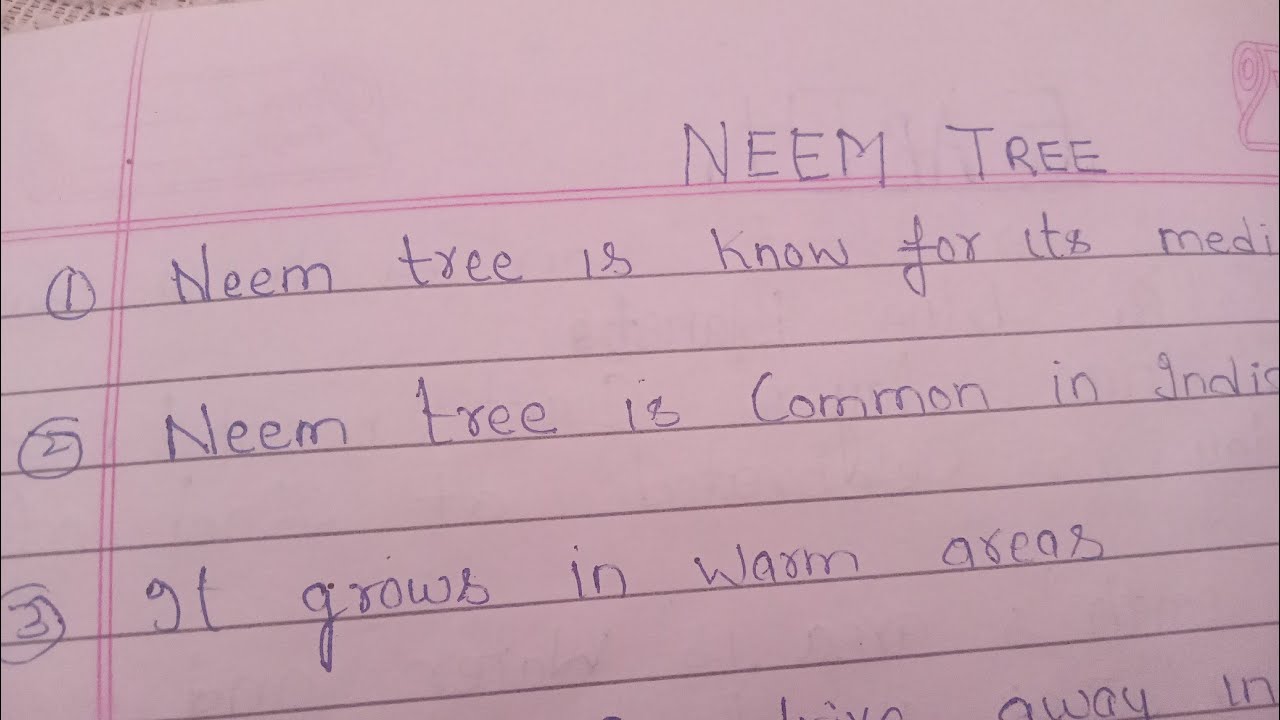 NEEM TREE
① Neem tree is know for its medi
② Neem tree is Common in India
③ It grows in warm areas
away in